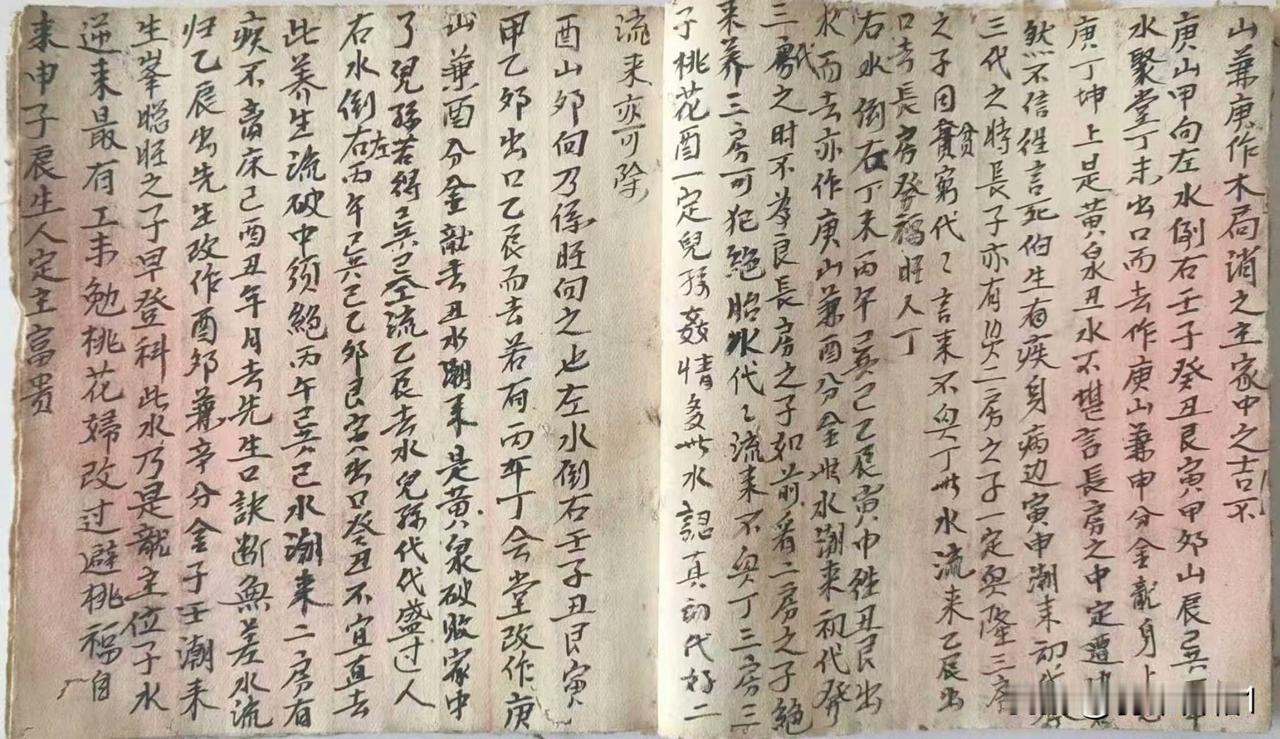 山兼庚作木局消之主家中之吉不
庚山甲向左水倒右壬子癸丑艮寅甲夘山辰巽
水聚堂丁未出口而去作庚山兼申分金龍身上
庚丁坤上是黄泉丑水不堪言長房之中定遭
然不信徃言死伯生有疾身病边寅申潮来初代
三代之時長子亦有二房之子一定兴隆三房
之子因貧窮代々言来不兴丁此水流来乙辰出
口去長房發福旺人丁
右水倒右丁未丙午巽巳乙辰寅巾丑艮出
水而去亦作庚山兼酉分金此水潮来初代發
三代房之時不孝良長房之子如前看二房之子絶
来养三房可犯絶胎水代々流来不兴丁三房三
子桃花酉一定兒孫姦情多此水認真初代好二
流来亦可除
酉山夘向乃係旺向之也左水倒右壬子丑艮寅
甲乙夘出口乙辰而去若有丙午丁会堂改作庚
山兼酉分金献去丑水潮来是黄泉破败家中
了兒孫若得巽巳流乙辰去水兒孫代代盛过人
右水倒左丙午巽巳乙夘艮出口癸丑不宜直去
此养生流破中須絶丙午巽巳水潮来二房有
疾不离床巳酉丑年月去先生口訣断無差水流
归乙辰出先生改作酉夘兼辛分金子壬潮来
生峯聡旺之子早登科此水乃是龍主位子水
逆来最有工未勉桃花婦改过避桃福自
来申子辰生人定主富贵